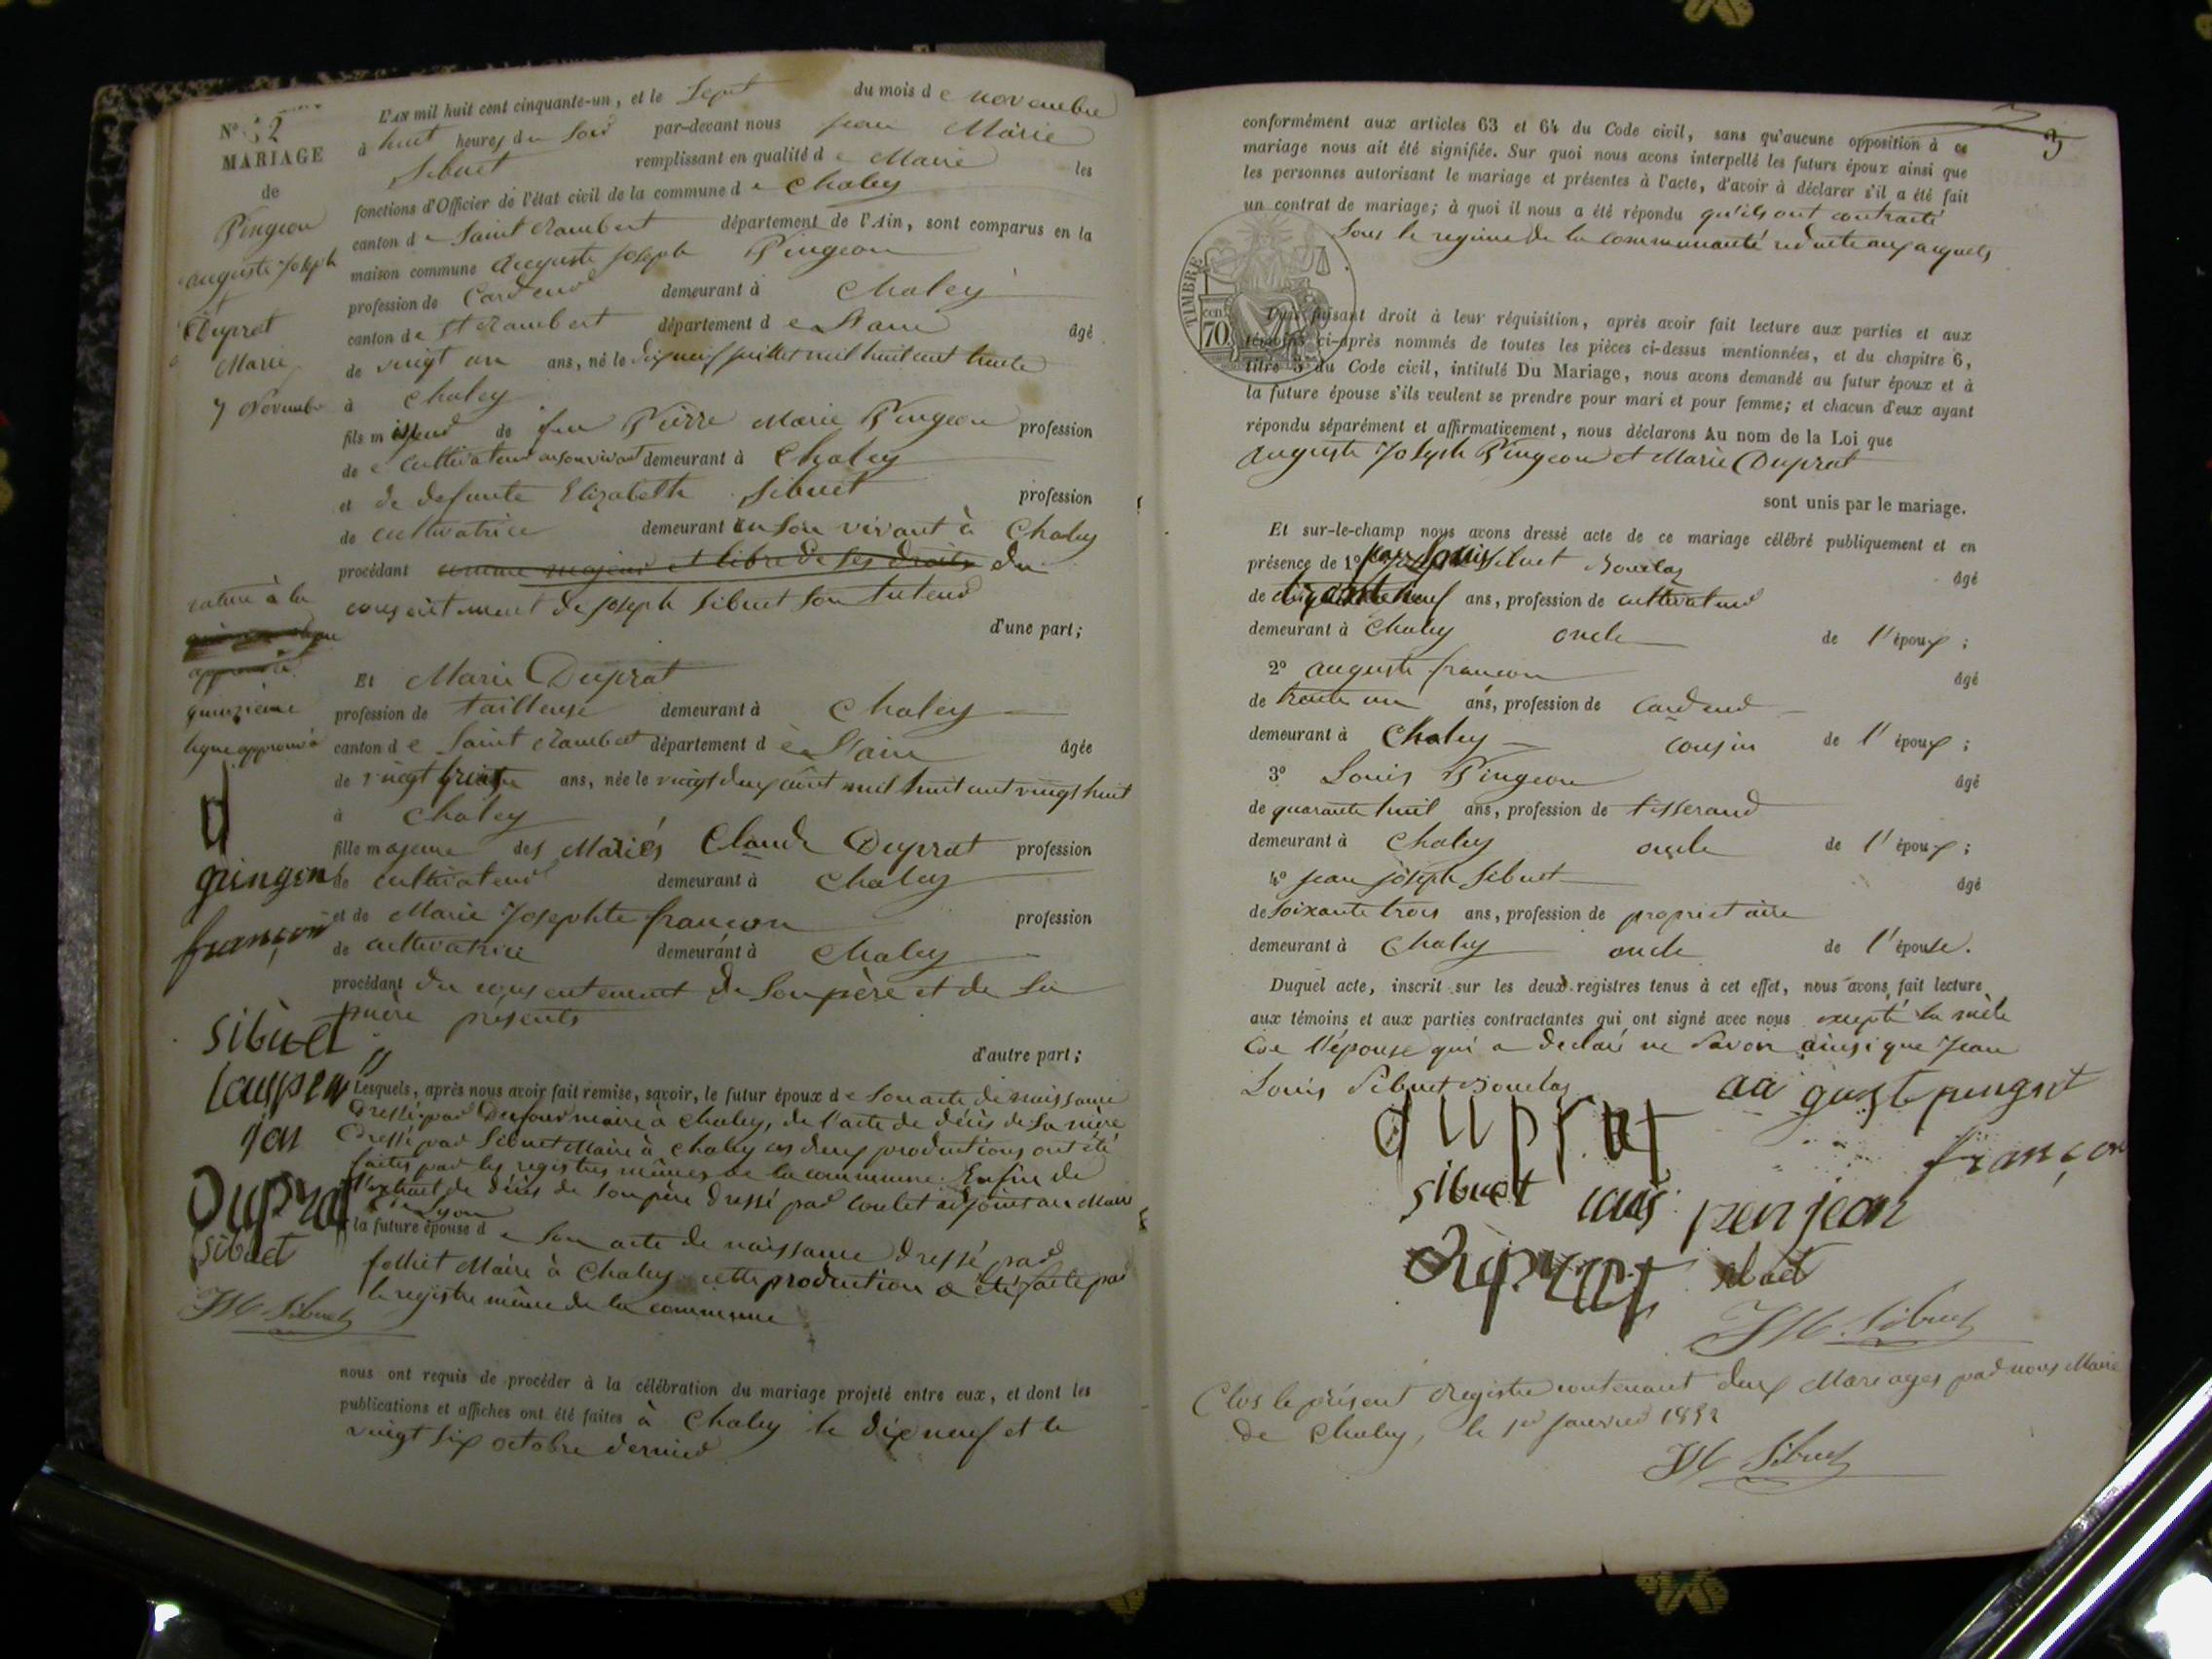 N° 2
MARIAGE
de
Pingeon
auguste Joseph
et
Duprat
Marie
7 Novembre
L'AN mil huit cent cinquante-un, et le Sept du mois de novembre
à huit heures du Soir par-devant nous jean Marie
Sibuet remplissant en qualité de Maire les
fonctions d'Officier de l'état civil de la commune de Chaley
canton de Saint Rambert département de l'Ain, sont comparus en la
maison commune Auguste Joseph Pingeon
profession de Cardeur demeurant à Chaley
canton de St Rambert département de l'ain âgé
de vingt un ans, né le dix neuf juillet mil huit cent trente
à Chaley
fils mineur de feu Pierre Marie Pingeon profession
de cultivateur en son vivant demeurant à Chaley
et de defunte Elizabeth Sibuet profession
de cultivatrice demeurant en son vivant à Chaley
procédant comme majeur et libre de ses droits du
consentement de Joseph Sibuet son tuteur
d'une part;
rature à la
approuvé
quinzieme
ligne approuvé
Et Marie Duprat
profession de tailleuse demeurant à Chaley
canton de Saint Rambert département de l'ain âgée
de vingt trois ans, née le vingt deux août mil huit cent vingt huit
à Chaley
fille majeure des Mariés Claude Duprat profession
de cultivateur demeurant à Chaley
et de Marie Josephte françon profession
de cultivatrice demeurant à Chaley
procédant du consentement de son père et de sa
mère présents
d'autre part;
d
pingon
françon
sibuet
Duprat
sibuet
JM Sibuet
Lesquels, après nous avoir fait remise, savoir, le futur époux de son acte de naissance
dressé par Dufour maire à Chaley, de l'acte de décès de sa mère
dressé par Sibuet Maire à Chaley ces deux productions ont été
faites par les registres mêmes de la commune. Enfin de
l'extrait de décès de son père dressé par Coulet adjoint au Maire
de Lyon
la future épouse de son acte de naissance dressé par
follict Maire à Chaley cette production a été faite par
le registre même de la commune
nous ont requis de procéder à la célébration du mariage projeté entre eux, et dont les
publications et affiches ont été faites à Chaley le dix neuf et le
vingt six octobre dernier
3
conformément aux articles 63 et 64 du Code civil, sans qu'aucune opposition à ce
mariage nous ait été signifiée. Sur quoi nous avons interpellé les futurs époux ainsi que
les personnes autorisant le mariage et présentes à l'acte, d'avoir à déclarer s'il a été fait
un contrat de mariage; à quoi il nous a été répondu qu'ils ont contracté
sous le regime de la communauté reduite aux acquets
TIMBRE
70 cen
faisant droit à leur réquisition, après avoir fait lecture aux parties et aux
témoins ci-après nommés de toutes les pièces ci-dessus mentionnées, et du chapitre 6,
titre 5 du Code civil, intitulé Du Mariage, nous avons demandé au futur époux et à
la future épouse s'ils veulent se prendre pour mari et pour femme; et chacun d'eux ayant
répondu séparément et affirmativement, nous déclarons Au nom de la Loi que
Auguste Joseph Pingeon et Marie Duprat
sont unis par le mariage.
Et sur-le-champ nous avons dressé acte de ce mariage célébré publiquement et en
présence de 1° jean Louis Sibuet Bouclaz âgé
de ans, profession de cultivateur
demeurant à Chaley oncle de l'époux;
2° auguste françon âgé
de trente un ans, profession de cardeur
demeurant à Chaley cousin de l'époux;
3° Louis Pingeon âgé
de quarante huit ans, profession de tisserand
demeurant à Chaley oncle de l'époux;
4° jean joseph Sibuet âgé
de soixante trois ans, profession de proprietaire
demeurant à Chaley oncle de l'épouse.
Duquel acte, inscrit sur les deux registres tenus à cet effet, nous avons fait lecture
aux témoins et aux parties contractantes qui ont signé avec nous excepté la mère
de l'épouse qui a declaré ne savoir ainsi que Jean
Louis Sibuet Bouclaz
duprat
françon
sibuet louis penjeon
Duprat
JM Sibuet
Clos le présent registre contenant deux Mariages par nous Maire
de Chaley, le 1er janvier 1852
JM Sibuet